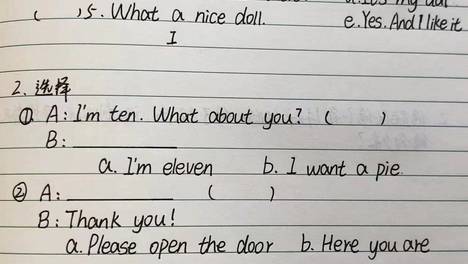 ( )5. What a nice doll. e. Yes. And I like it
I
2. 选择
① A: I'm ten. What about you? ( )
B: ____________
a. I'm eleven b. I want a pie.
② A: ____________ ( )
B: Thank you!
a. Please open the door b. Here you are